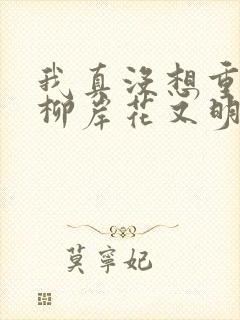 我真没想重
柳岸花又明
莫宁妃